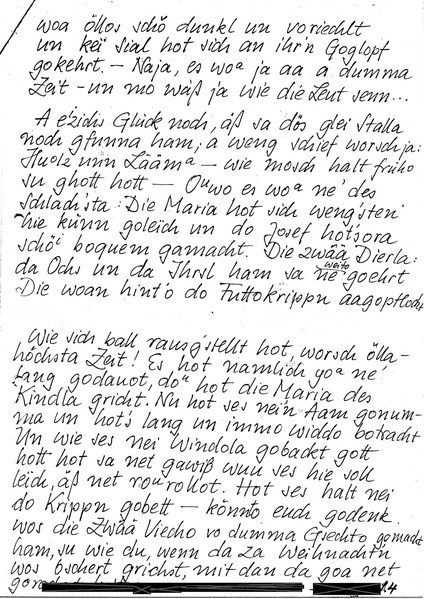 woa öllos schö dunkl un voriechlt
un kẽi Sial hot sich an ihr'n Goglopf
gokehrt. – Naja, es woᵃ ja aa a dumma
Zeit – un mo wäß ja wie die Leut senn...
A ëzichs Glück noch, äß sa dös glei Stalla
noch gfunna ham, a weng schief worsch ja:
Huolz unn Lääma – wie mosch halt früho
su ghott hott – Ouwo es woᵃ ne' des
Schlachsta: Die Maria hot sich wengsten'
hie künn goleich un do Josef hot'sora
schö' boquem gamacht. Die zwää Dierla:
da Ochs un da Ihrsl ham sa ne' weito goehrt
Die woan hint'o do Futtokrippn aagopflockt
Wie sich ball rausgstellt hot, worsch ölla-
höchsta Zeit! Es hot nämlich goᵃ ne'
lang godauot, doᵃ hot die Maria des
Kindla gricht. Nu hot ses nei'n Aam gonum-
ma un hot's lang un immo widdo botracht
Un wie ses nei Windola gobackt gott
hott hot sa net gawiß wuu ses hie soll
leich, äß net roᵘrollot. Hot ses halt nei
do Krippn gobett – könnto euch godenk
wos die Zwää Viecho vo dumma Gsechto gomacht
ham, su wie du, wenn da za Weihnacht'n
wos öschert grichst, mit dan da goa net
4